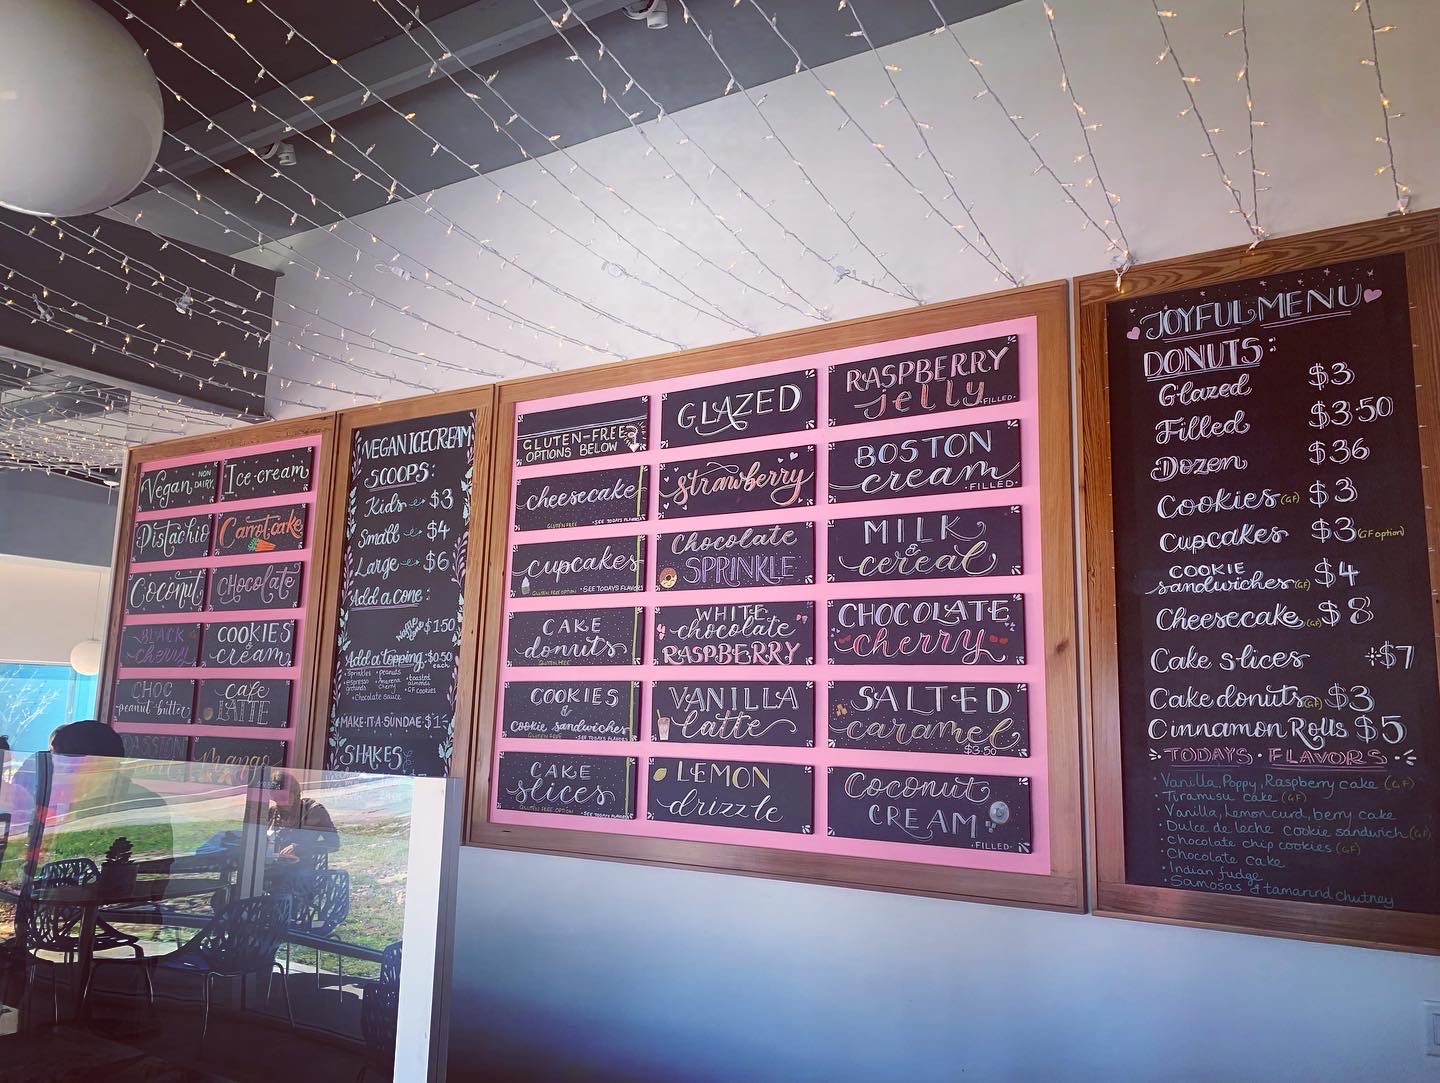 Vegan NON DAIRY
Ice-cream
Pistachio
Carrot cake
Coconut
CHOCOLATE
BLACK
cherry
COOKIES
& cream
CHOC
peanut-butter
CAFE
LATTE
PASSION
Mango
VEGAN ICECREAM
SCOOPS:
Kids $3
Small $4
Large $6
Add a cone:
$1.50
Add a topping: $0.50
each
• sprinkles • peanuts • toasted almonds
• espresso grounds • Amarena Cherry • GF cookies
• Chocolate sauce
MAKE·IT·A·SUNDAE $1
SHAKES
GLUTEN-FREE
OPTIONS BELOW
cheesecake
GLUTEN FREE • SEE TODAYS FLAVORS
cupcakes
GLUTEN FREE OPTION • SEE TODAYS FLAVORS
CAKE
donuts
GLUTEN FREE
COOKIES
&
Cookie sandwiches
GLUTEN FREE • SEE TODAYS FLAVORS
CAKE
slices
GLUTEN FREE OPTION • SEE TODAYS FLAVORS
GLAZED
strawberry
Chocolate
SPRINKLE
WHITE
chocolate
RASPBERRY
VANILLA
latte
LEMON
drizzle
RASPBERRY
jelly
·FILLED·
BOSTON
cream
·FILLED·
MILK
&
cereal
CHOCOLATE
cherry
SALTED
caramel
$3.50
Coconut
CREAM
·FILLED·
JOYFUL MENU
DONUTS:
Glazed $3
Filled $3.50
Dozen $36
Cookies (GF) $3
Cupcakes $3 (GF option)
COOKIE
sandwiches (GF) $4
Cheesecake (GF) $8
Cake slices $7
Cake donuts (GF) $3
Cinnamon Rolls $5
TODAYS · FLAVORS
• Vanilla, Poppy, Raspberry cake (GF)
Tiramisu cake (GF)
• Vanilla, Lemon curd, berry cake
• Dulce de leche cookie sandwich (GF)
• chocolate chip cookies (GF)
• Chocolate cake
• Indian fudge
• Samosas & tamarind chutney